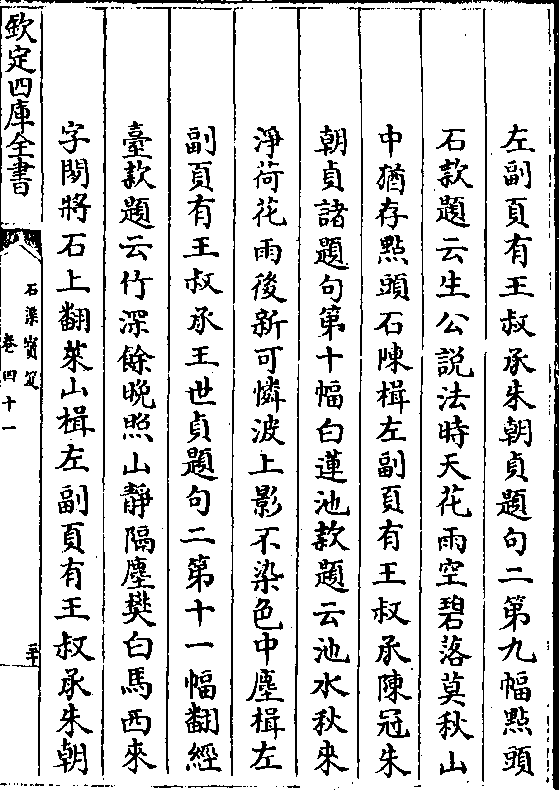 左副頁有王叔承朱朝貞題句二第九幅點頭
石款題云生公説法時天花雨空碧落莫秋山
中猶存點頭石陳楫左副頁有王叔承陳冠朱
朝貞諸題句第十幅白蓮池款題云池水秋來
淨荷花雨後新可憐波上影不染色中塵楫左
副頁有王叔承王世貞題句二第十一幅翻經
臺款題云竹深餘晚照山靜隔塵樊白馬西來
字閱將石上翻萊山楫左副頁有王叔承朱朝
欽定四庫全書
石渠寳笈
卷四十一
三十